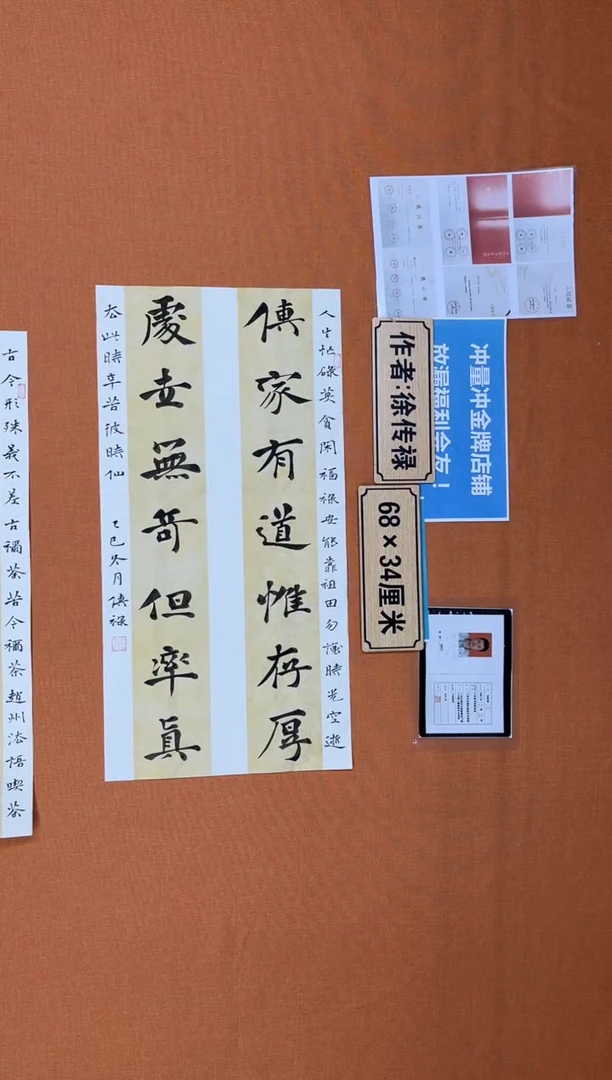 冲量冲金牌店铺
放漏福利会友！
作者:徐传禄
68×34厘米
人生忙碌莫貪閑福祿安能靠祖田勿讓時光空逝
傳家有道惟存厚
處世無奇但率真
去此時辛苦彼時仙 乙巳冬月傳祿
古今形殊義不差古稱荼苦今稱茶趙州法語喫茶